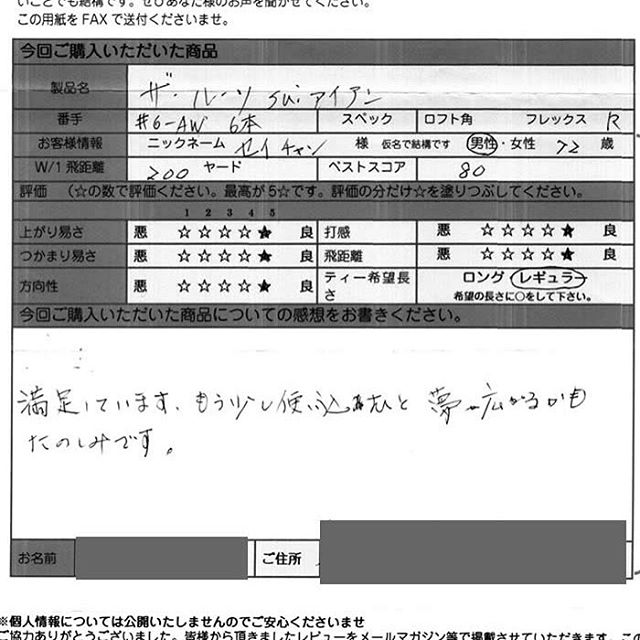 いことでも結構です。ぜひあなた様のお声を聞かせてください。
この用紙をFAXで送付くださいませ。
今回ご購入いただいた商品
製品名 ザ・ルーツ sui アイアン
番手 #6-AW 6本 スペック ロフト角 フレックス R
お客様情報 ニックネーム セイチャン 様 仮名で結構です 男性・女性 72 歳
W/1飛距離 200 ヤード ベストスコア 80
評価 (☆の数で評価ください。最高が5☆です。評価の分だけ☆を塗りつぶしてください。
1 2 3 4 5
上がり易さ 悪 ☆☆☆☆★ 良 打感 悪 ☆☆☆☆★ 良
つかまり易さ 悪 ☆☆☆☆★ 良 飛距離 悪 ☆☆☆☆★ 良
方向性 悪 ☆☆☆☆★ 良 ティー希望長さ ロング レギュラー
希望の長さに○をして下さい。
今回ご購入いただいた商品についての感想をお書きください。
満足しています、もう少し使い込むと夢が広がるかも
たのしみです。
お名前 ご住所
※個人情報については公開いたしませんのでご安心くださいませ
ご協力ありがとうございました。皆様から頂きましたレビューをメールマガジン等で掲載させていただきます。